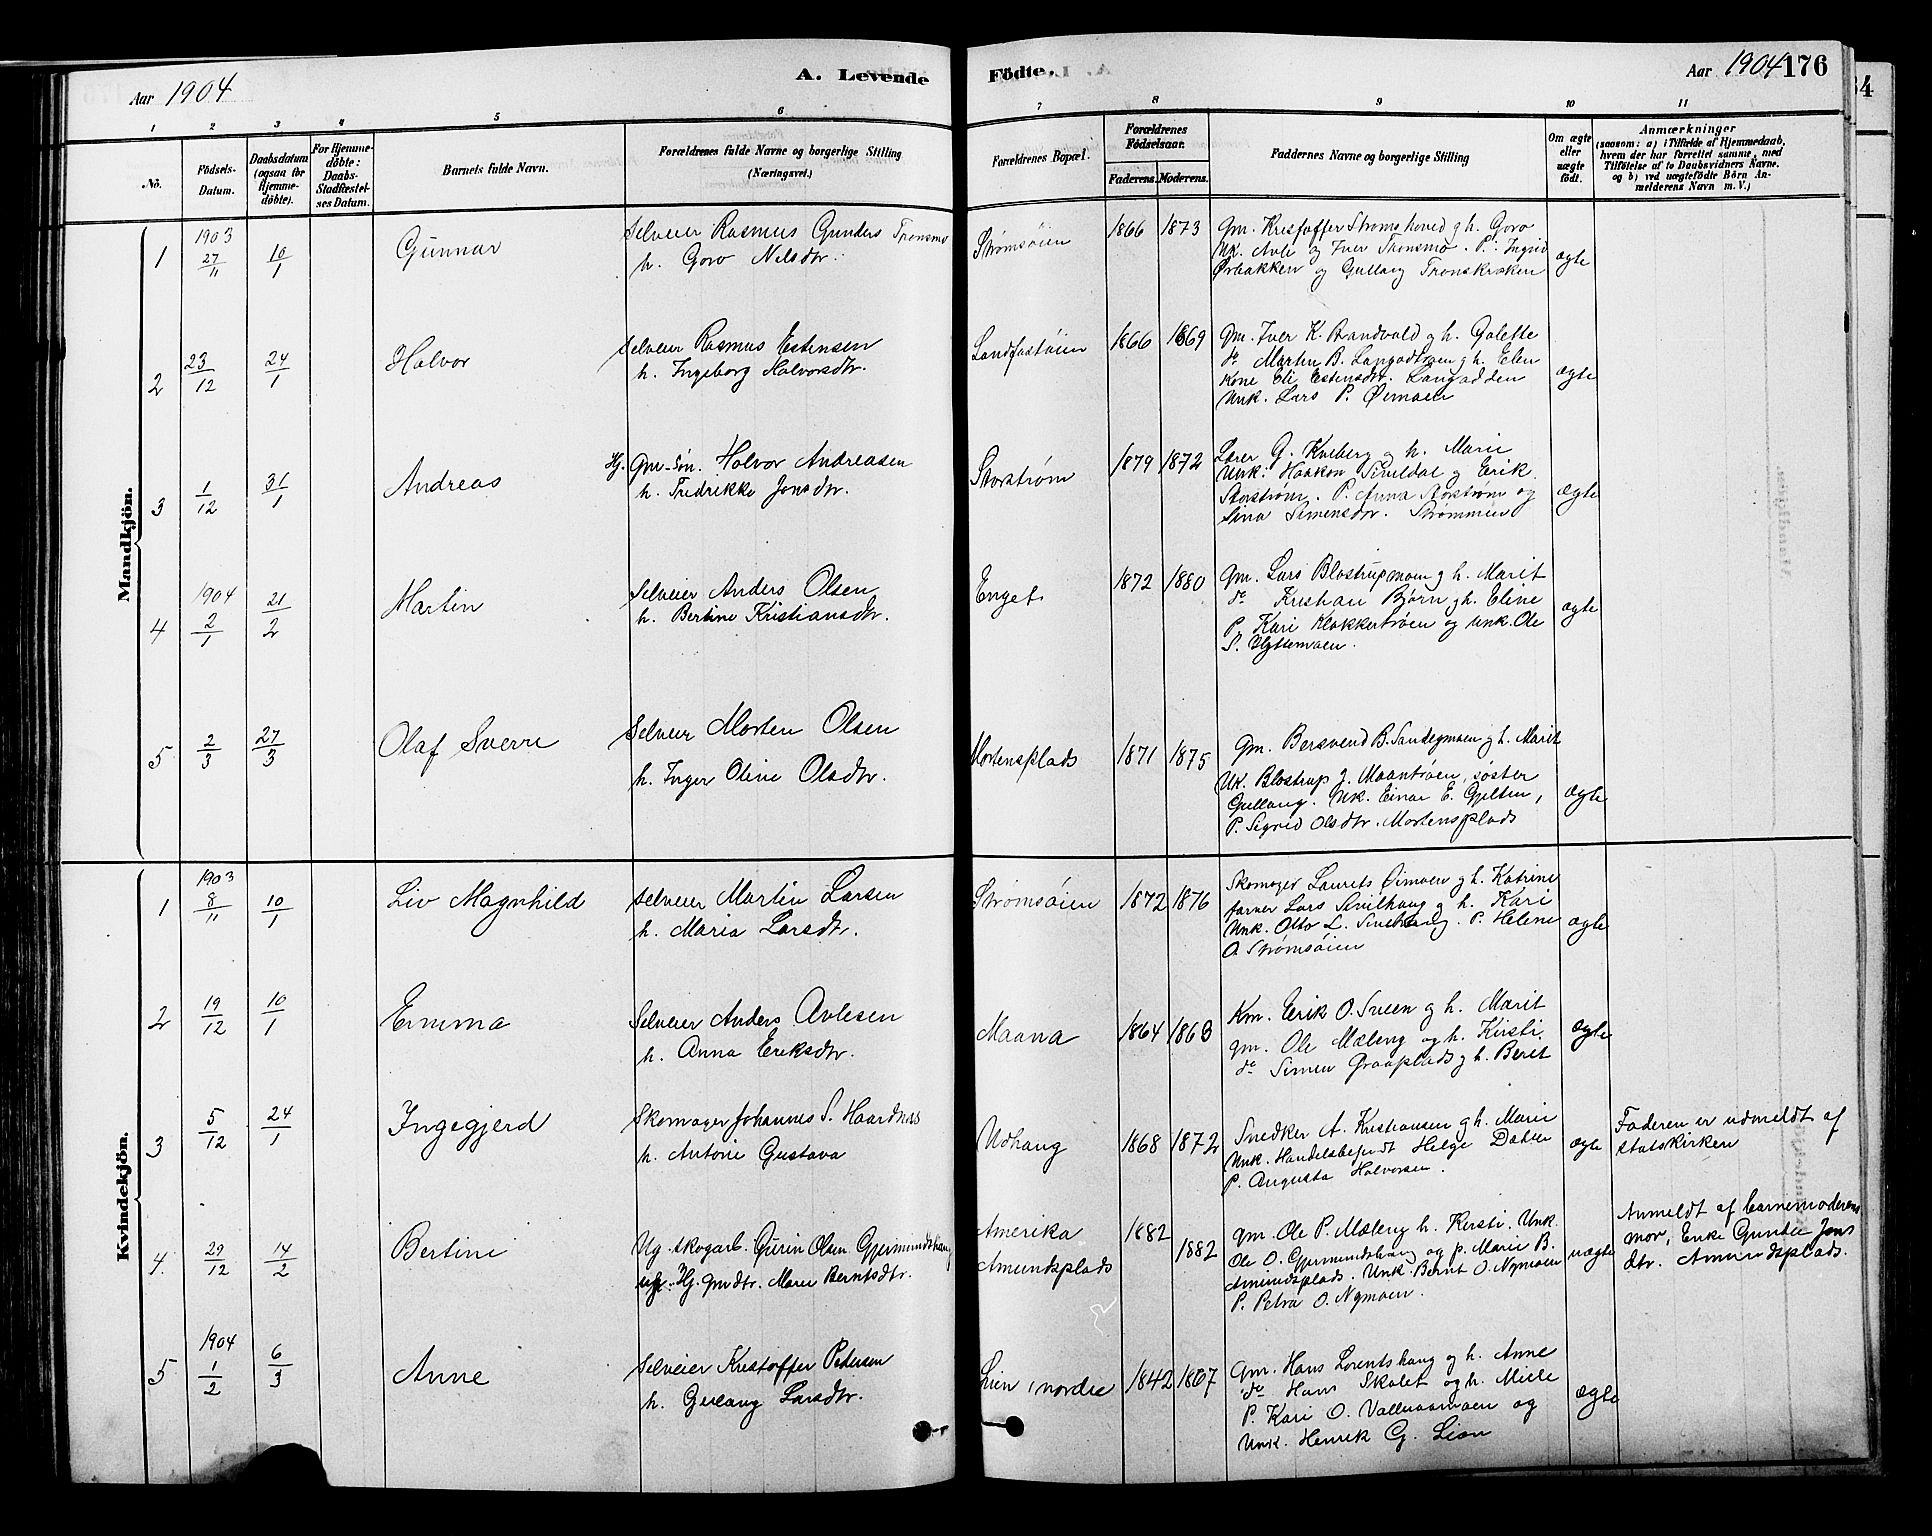 Aar 1904
A. Levende
Födte.
Aar 1904 176
1 2 3 4 5 6 7 8 9 10 11
No.
Födsels-Datum.
Daabsdatum (ogsaa for Hjemmedöbte).
For Hjemmedöbte: Daabs-Stadfæstelses Datum.
Barnets fulde Navn.
Forældrenes fulde Navne og borgerlige Stilling (Næringsvei.)
Forældrenes Bopæl.
Forældrenes Födselsaar.
Faderens. Moderens.
Faddernes Navne og borgerlige Stilling
Om ægte eller uægte födt.
Anmærkninger
(saasom: a) i Tilfælde af Hjemmedaab,
hvem der har forrettet samme, med
Tilföielse af to Daabsvidners Navne.
og b) ved uægtefödte Börn An-
melderens Navn m. V.)
Mandkjön.
1
1903
27/11 10/1
Gunnar
Selveier Rasmus Gunders Tronsmo
h. Goro Nilsdtr.
Strømsøien
1866 1873
Gm. Kristoffer Strømshoved gh. Goro
Uk. Avle og Iver Tronsmo. P. Ingrid
Ørbakken og Gullaug Tronskrøken
ægte
2
23/12 24/1
Halvor
Selveier Rasmus Estensen
h. Ingeborg Halvorsdtr.
Sandfastøien
1866 1869
Gm. Iver K. Brandvold gh. Galette
do Martin B. Langodtrøen gh. Elen
Kone Eli Estensdtr. Langodden
Unk. Lars P. Øimoen
ægte
3
1/12 31/1
Andreas
Hj. Gm-Søn. Halvor Andreasen
h. Fredrikke Jonsdtr.
Storstrøm
1879 1872
Lærer G. Kveberg og h. Marie
Unk. Haakon Sivildal og Erik
Storstrøm. P. Anna Storstrøm og
Sina Simensdtr. Strømmen
ægte
4
1904
2/1 21/2
Martin
Selveier Anders Olsen
h. Bertine Kristiansdtr.
Enget
1872 1880
Gm. Lars Blostrupmoen gh. Marit
do Kristian Bjørn gh. Eline
P. Kari Klokkertrøen og Unk. Ole
P. Hyttemoen.
ægte
5
2/3 27/3
Olaf Sverre
Selveier Morten Olsen
h. Inger Oline Olsdtr.
Mortensplads
1871 1875
Gm. Bersvend B. Sandegmoen gh. Marit
Uk. Blostrup J. Maantrøen, søster
Gullaug. Unk. Einar E. Gjelten,
P. Sigrid Olsdtr. Mortensplads
ægte
Kvindekjön.
1
1903
8/11 10/1
Liv Magnhild
Selveier Martin Larsen
h. Maria Larsdtr.
Strømsøien
1872 1876
Skomager Laurets Øimoen gh. Katrine
farver Lars Sivilhaug og h. Kari
Unk. Otto L. Sivilhaug. P. Helene
O. Strømsøien
ægte
2
19/12 10/1
Emma
Selveier Anders Avlesen
h. Anna Eriksdtr.
Maana
1864 1863
Km. Erik O. Sveen gh. Marit
gm. Ole Mæleng og h. Kirsti
do Simen Graaplads gh. Berit
ægte
3
5/12 24/1
Ingegjerd
Skomager Johannes S. Haardnæs
h. Antoni Gustava
Udhaug
1868 1872
Snedker A. Kristiansen gh. Marie
Unk. Handelsbetjent Helge Dahlen
P. Augusta Halvorsen.
ægte
Faderen er udmeldt af
statskirken
4.
29/12 14/2
Bertine
Ug. skogarb. Gurin Olsen Gjermundshaug
ug. Hj. gmdtr. Marie Berntsdtr.
Amerika
Amundsplads
1882
1882
gm. Ole P. Mæleng h. Kersti. Unk.
Ole O. Gjermundshaug og p. Marie B.
Amundsplads. Unk. Bernt O. Nymoen
P. Petra O. Nymoen.
uægte
Anmeldt af barnemoderens
mor, Enke Gunda Jons
dtr. Amundsplads.
5
1904
1/2 6/3
Anne
Selveier Kristoffer Pedersen
h. Gullaug Larsdtr.
Lien, nordre
1842 1867
Gm. Hans Lorentshaug og h. Anne
do Hans Skolet og h. Miele
P. Kari O. Vollumsmoen og
Unk. Henrik G. Lien
ægte